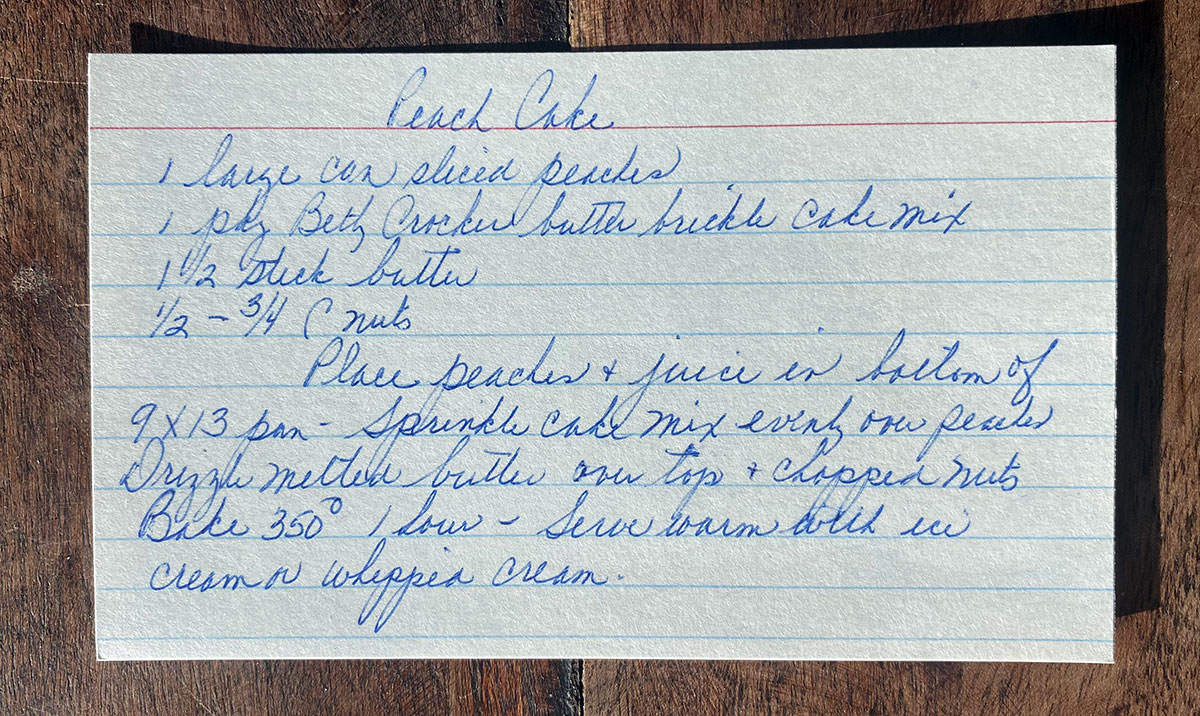 Peach Cake
1 large can sliced peaches
1 pkg Betty Crocker butter brickle cake mix
1 1/2 stick butter
1/2 - 3/4 C nuts
Place peaches + juice in bottom of
9 X 13 pan - Sprinkle cake mix evenly over peaches
Drizzle melted butter over top + chopped nuts
Bake 350° 1 hour - Serve warm with ice
cream or whipped cream.